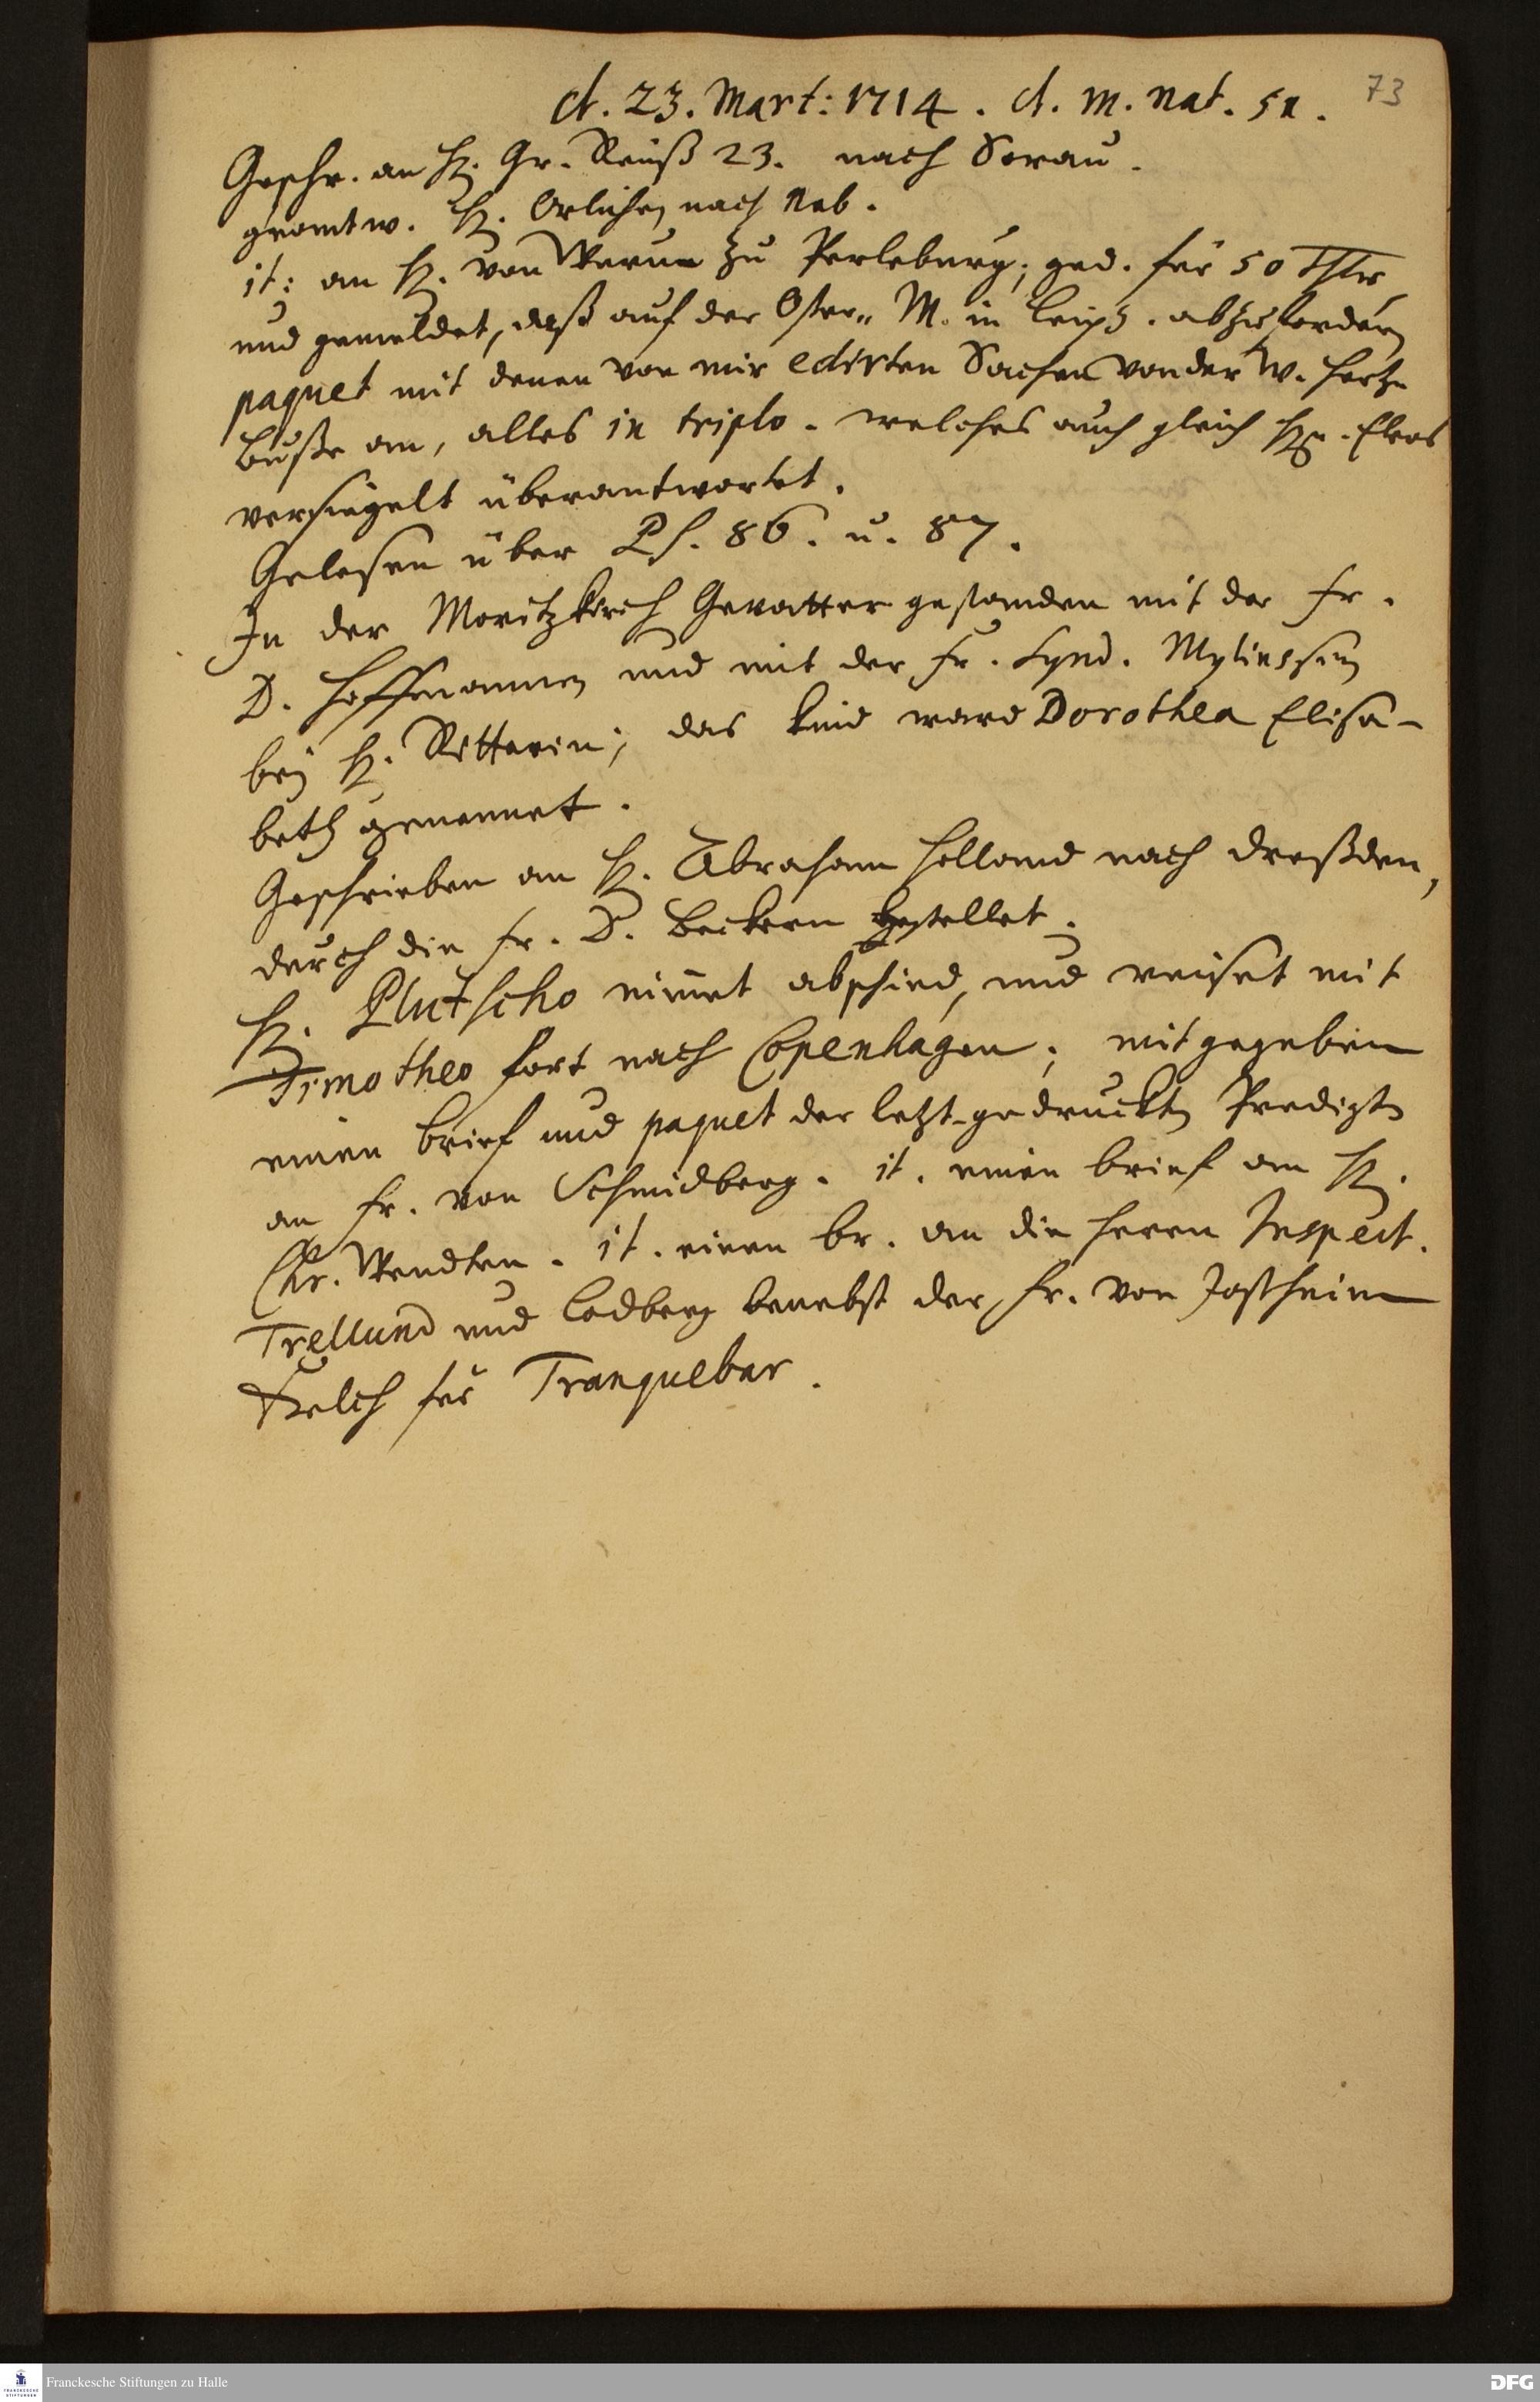 d. 23. Mart: 1714. d. m. nat. 51.
73
Geschr. an H. Gr. Reuß 23. nach Sorau.
geantw. H. Erlichen nach Neb.
it: an H. von zu Perleburg; ged. für 50 Thlr
und gemeldet, daß auf der Oster-M. in Leipz. abzufordern
paquet mit denen von mir edirten Sachen von der W. Hertz
Buße an, alles in triplo. welches auch gleich Hn. Elers
versiegelt überantwortet.
Gelesen über Ps. 86. u. 87.
In der Moritzkirch Gevatter gestanden mit der Fr.
D. Hoffmannen und mit der Fr. Synd. Myliussin
bey H. Ritterin; das Kind ward Dorothea Elisa-
beth genennet.
Geschrieben an H. Abraham Holland nach Dreßden,
durch die Fr. D. Beckern bestellet.
H. Plutscho nimet abschied, und reiset mit
Timotheo fort nach Copenhagen; mitgegeben
einen brief und paquet der letzt-gedruckten Predigten
an Fr. von Schmidberg. it. einen brief an H.
Chr. Wendten. it. einen br. an die Herrn Inspect.
Trellund und Lodberg benebst der Fr. von
Kelch für Tranquebar.
Franckesche Stiftungen zu Halle
DFG